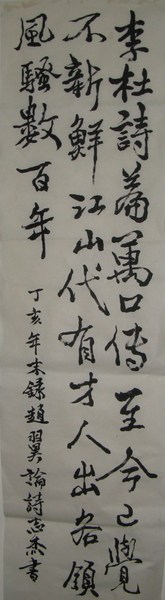 李杜詩萹萬口傳至今已覺
不新鮮江山代有才人出各領
風騷數百年
丁亥年末録趙翼論詩志杰書